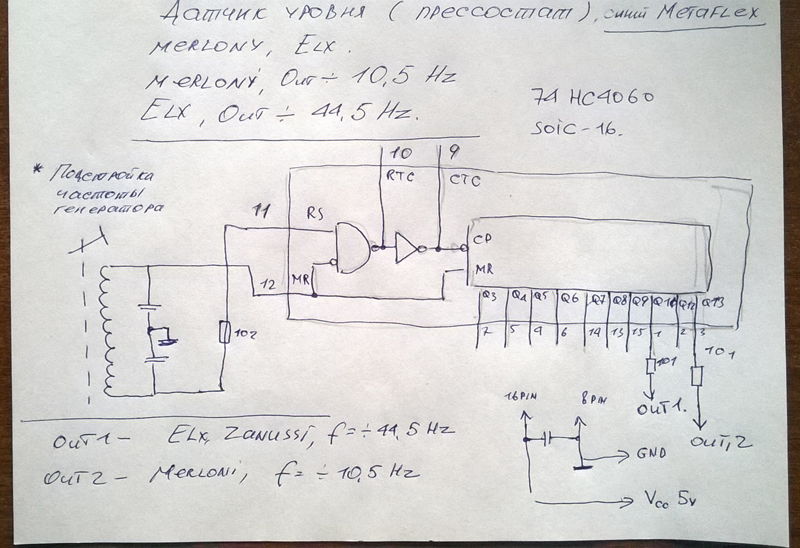 Датчик уровня (прессостат), синий MetaFlex
Merlony, Elx.
Merlony, Out ÷ 10,5 Hz
Elx, Out ÷ 44,5 Hz.
74HC4060
SOIC-16.
* Подстройка
частоты
генератора
10 9
RTC CTC
11 RS
CP
MR
12 MR
102
Q3 Q4 Q5 Q6 Q7 Q8 Q9 Q12 Q13
7 5 4 6 14 13 15 1 2 3
101 101
OUT1. OUT,2
16PIN 8PIN
GND
Vcc 5v
Out1 - Elx, Zanussi, f = ÷ 44,5 Hz
Out2 - Merloni, f = ÷ 10,5 Hz